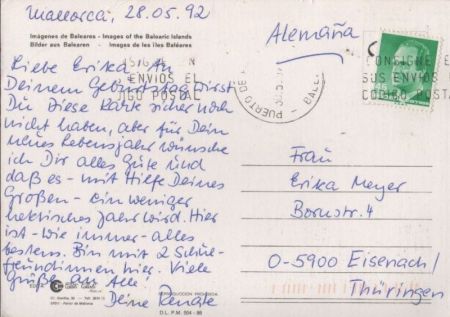 Mallorca, 28.05.92
Imágenes de Baleares - Images of the Balearic Islands
Bilder aus Balearen - Images de les îles Baléares
Liebe Erika - An
Deinem Geburtstag wirst
Du diese Karte sicher noch
nicht haben, aber für Dein
neues Lebensjahr wünsche
ich Dir alles Gute und
daß es - mit Hilfe Deines
Großen - ein weniger
hektisches Jahr wird. Hier
ist - wie immer - alles
bestens. Bin mit 2 Schul-
freundinnen hier. Viele
Grüße an Alle.
Deine Renate
Alemaña
CONSIGNE EN
SUS ENVIOS EL
CODIGO POSTAL
PUERTO DE
CONSIGNE E
SUS ENVIOS
CODIGO POSTA
Frau
Erika Meyer
Bornstr. 4
O-5900 Eisenach/
Thüringen
REPRODUCCION PROHIBIDA
D.L. P.M. 504-88